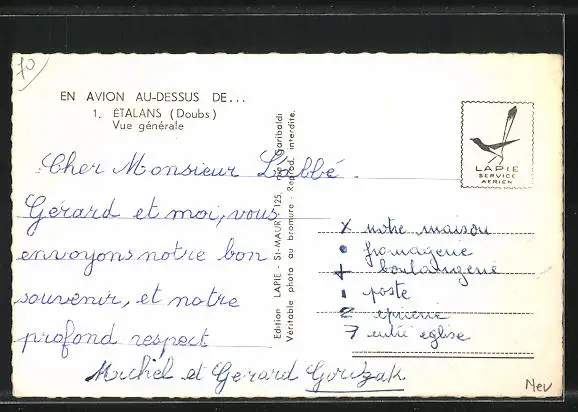 70
EN AVION AU-DESSUS DE...
1. ÉTALANS (Doubs)
Vue générale
LAPIE
SERVICE
AERIEN
Cher Monsieur L'abbé.
Gérard et moi, vous
envoyons notre bon
souvenir, et notre
profond respect
Michel et Gerard
Edition LAPIE - St-MAUR 125, rue Garibaldi
Véritable photo au bromure - Reprod. interdite.
x notre maison
• fromagerie
+ boulangerie
poste
2 epicerie
7 entré eglise
Neu